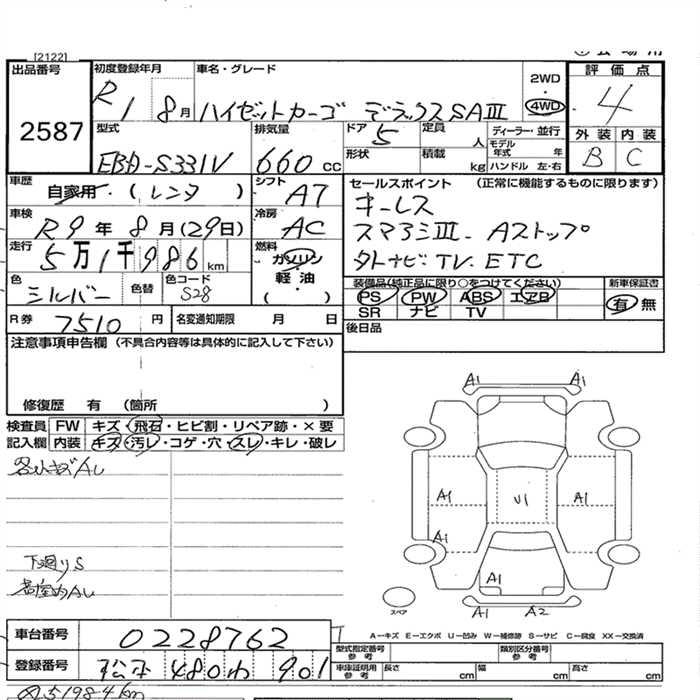 [2122]
出品番号
2587
初度登録年月
R1 8月
車名・グレード
ハイゼットカーゴ デラックスSAⅢ
2WD
・
4WD
評価点
4
外装 内装
B C
型式
EBD-S331V
排気量
660 cc
ドア 5
形状
定員 人
積載 kg
ディーラー・並行
モデル年式 年
ハンドル 左・右
車歴
自家用・(レンタ )
シフト
A7
車検
R9年8月(29日)
冷房
AC
走行
5万1千986km
燃料
ガソリン
・
軽・油
( )
色
シルバー
色替
色コード
S28
R券
7510円
名変通知期限 月 日
セールスポイント (正常に機能するものに限ります)
キーレス
スマアシⅢ. Aストップ
外ナビ TV. ETC
装備品(純正品に限り○をつけてください)
PS PW ABS エアB
SR ナビ TV
新車保証書
有・無
後日品
注意事項申告欄 (不具合内容等は具体的に記入して下さい)
修復歴 有 (箇所 )
検査員記入欄
FW キズ・飛石・ヒビ割・リペア跡・×要
内装 キズ・汚レ・コゲ・穴・スレ・キレ・破レ
下廻りS
A1 A1
A1 U1 A1
A1
A1
A1 A2
スペア
A-キズ E-エクボ U-凹み W-補修跡 S-サビ C-腐食 XX-交換済
車台番号
0228762
登録番号
松本 480わ 901
型式指定番号 参考
類別区分番号 参考
車庫証明用 参考
長さ cm
幅 cm
高さ cm
51984km